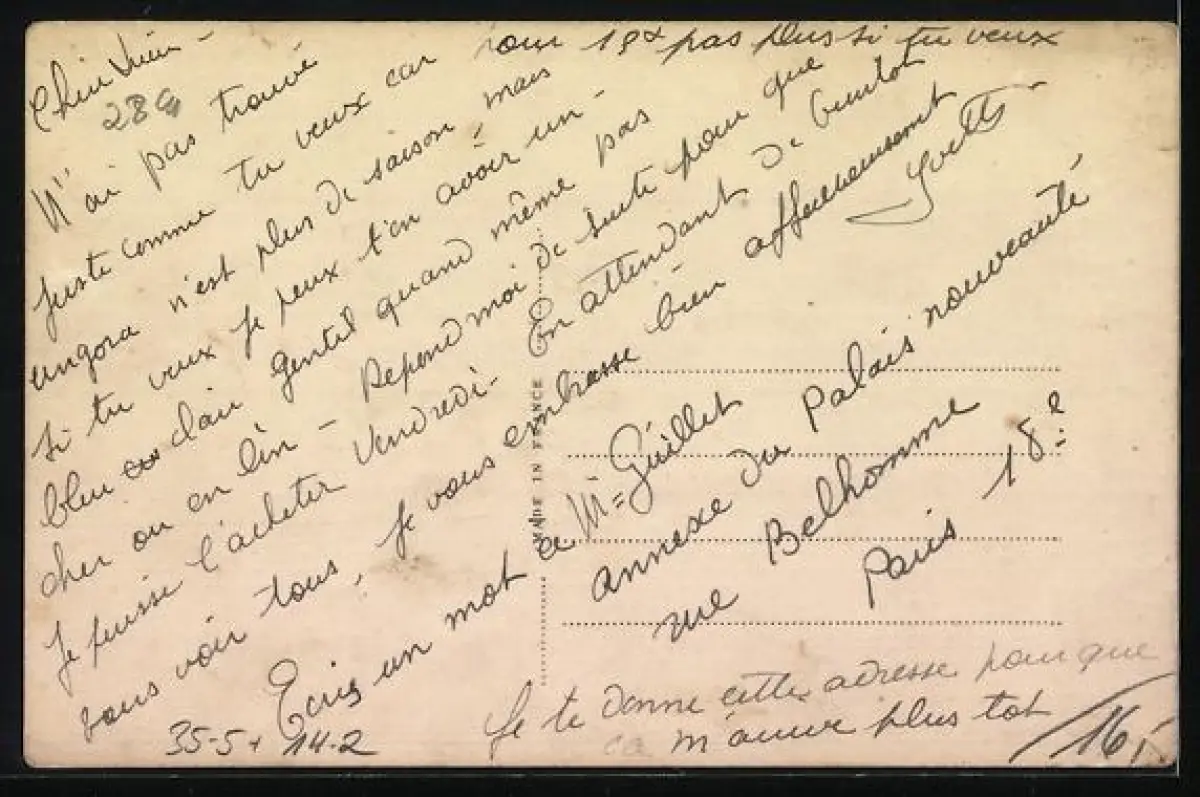 28G
N'ai pas trouvé
juste comme tu veux car
angora n'est plus de saison, mais
si tu veux je peux t'en avoir un -
bleu clair gentil quand même pas
cher ou en lin - Repond moi de suite pour que
je puisse l'acheter Vendredi - En attendant de
vous voir tous, je vous embrasse bien affectueusement
Yvette
pour 18x pas plus si tu veux
Ecris un mot a Me Guillet
annexe du Palais nouveauté
rue Belhomme
Paris 18e
Je te donne cette adresse pour que
ca m'arrive plus tot
35-5+ 14-2
16,-
MADE IN FRANCE